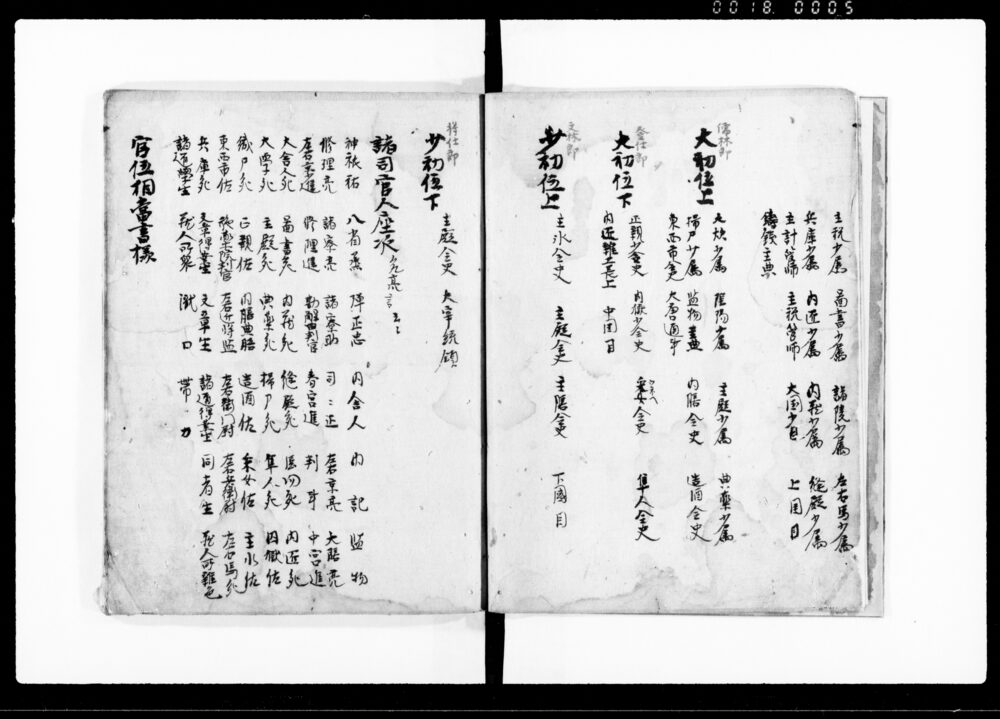 0018 0005
主税少属 圖書少属 諸陵少属 左右馬少属
兵庫少属 内匠少属 内蔵少属 縫殿少属
主計算師 主税算師 大国少目 上国目
鋳銭主典
儒林郎
大初位上
大炊少属 陰陽少属 主殿少属 典薬少属
掃戸少属 監物主典 内膳令史 造酒令史
東西市令史 大唐通事
登仕郎
大初位下
正親少令史 内儀少令史 采女令史 隼人令史
内匠雜工長上 中国目
文林郎
少初位上
主水令史 主殿令史 主膳令史 下國目
将仕郎
少初位下
主殿令史 大宰統領
諸司官人座次 允亮言云々
神祇祐 八省丞 弾正忠 内舎人 内記 監物
修理亮 諸寮亮 諸寮助 司々正 左右京亮 大膳亮
左右京進 修理進 勘解判官 春宮進 判事 中宮進
大舎人允 圖書允 内蔵允 縫殿允 馬四允 内匠允
大學允 主殿允 典薬允 掃戸允 隼人允 囚獄佐
織戸允 正親佐 内膳典膳 造酒佐 采女佐 主水佐
東西市佐 施薬院判官 左右近将監 左右衛門尉 左右兵衛尉 左右馬允
兵庫允 文章得業生 文章生 諸道得業生 同者生 蔵人所雜色
諸道學生 蔵人所衆 瀧口 帯刀
官位相當書樣